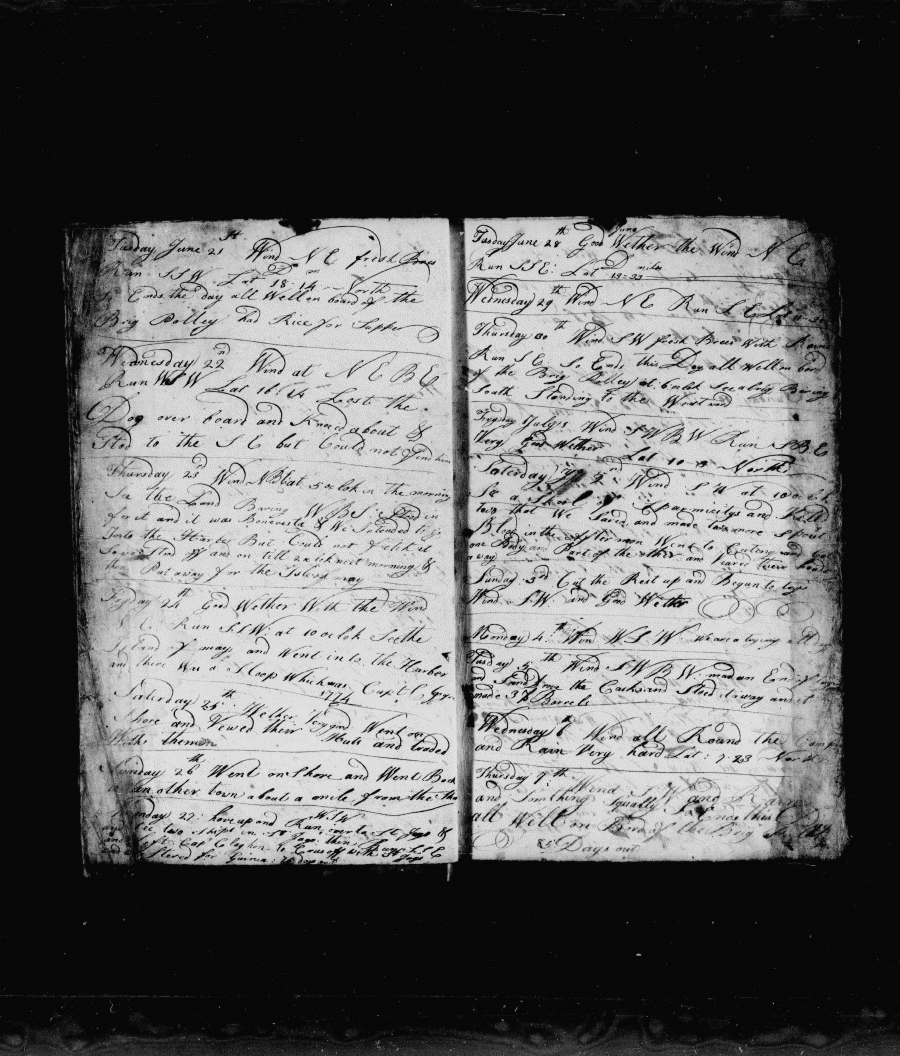 Tusday June 21 st Wind N E fresh Brees
Run SSW Lat D 18:14 m North
So Ends the day all Well on board of the
Brig Polley had Rice for Supper
Wednesday 22 n Wind at N E B E
Run W S W Lat 16:14 Lost the
Dog over board and Runed about &
Stod to the S E but Could not find him
Thursday 23 d Wind NBE at 5 oclok in the morning
Se the Land Baring W B S: Stod in
for it and it was Bonevista & We Intended to go
Into the Harbor But Could not fetch it
So we Stod off and on till 2 oclok next morning &
then Put away for the Isle of may
Fryday 24 th Good Wether With the Wind
N E. Run SSW: at 10 oclok See the
Island of may and Went in to the Harbor
and there Was a Sloop Which was Capt
1774
Saturday 25 th Wether Went on
Shore and Vewed their Huts and traded
With them
Sunday 26 th Went on Shore and Went Back
to an other town about a mile from the
Monday 27: hove up and Run
two Ships in St Jago
Capt
for Guinea: 75 days out
Tusday June 28 th Good Wether the Wind N E
Run SSE: Lat D 13=33 miles
Wednesday 29 th Wind N E Run S E
Thursday 30 th Wind SW fresh Brees With Rain
Run S E: So Ends this Day all Well on bord
of the Brig Polley at 6 oclok See a brig Baring
South Standing to the Westward
Fryday July 1 Wind S W B W Run S B E
Very Good Wether Lat 10 North
Saturday 2 Wind S W at 10 oclok
Se a Skool of Sparmicitys and Kill
two that We Saved and made two more Spout
Blod in the After noon Went to Cuting
on Body and Part of the other and
away
Sunday 3 d Cut the Rest up and Began to try
Wind S W. and Good Wether
Monday 4 th Wind W S W We are a trying
Tusday 5 th Wind S W B W: mad an End of
and the Casks and Stod away
made 37 Barrels
Wednesday 6 th Wind all Round the Compas
and Rain Very hard Lat: 7=23 North
Thursday 7 th Wind: S W and Rain
and Somthing Squally So Ends this
all Well on Bord of the Brig
85 Days out